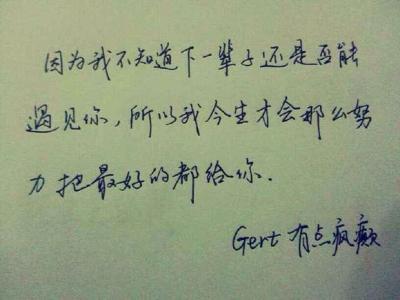 因为我不知道下一辈子还是否能
遇见你，所以我今生才会那么努
力把最好的都给你.
Gert 有点疯癫